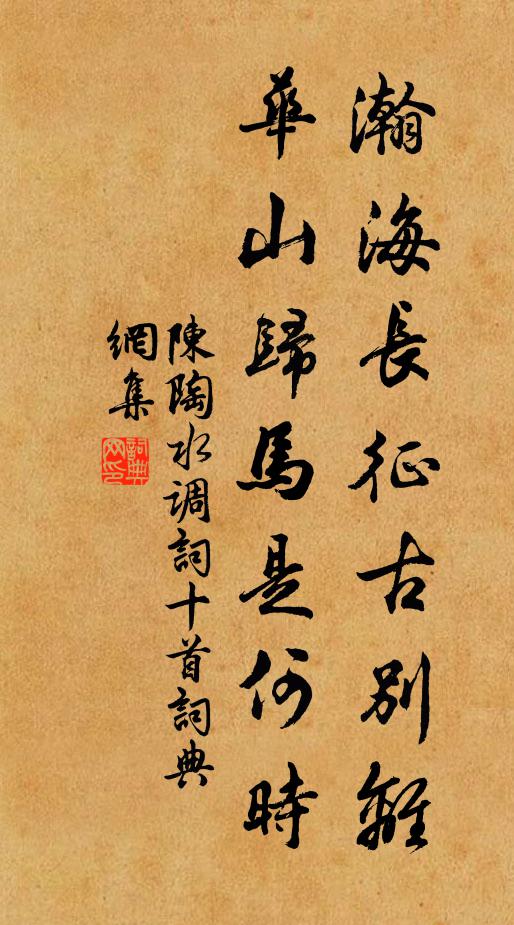 瀚海長征古別離
華山歸馬是何時
陳陶水調詞十首詞典
網集
詞典
网印